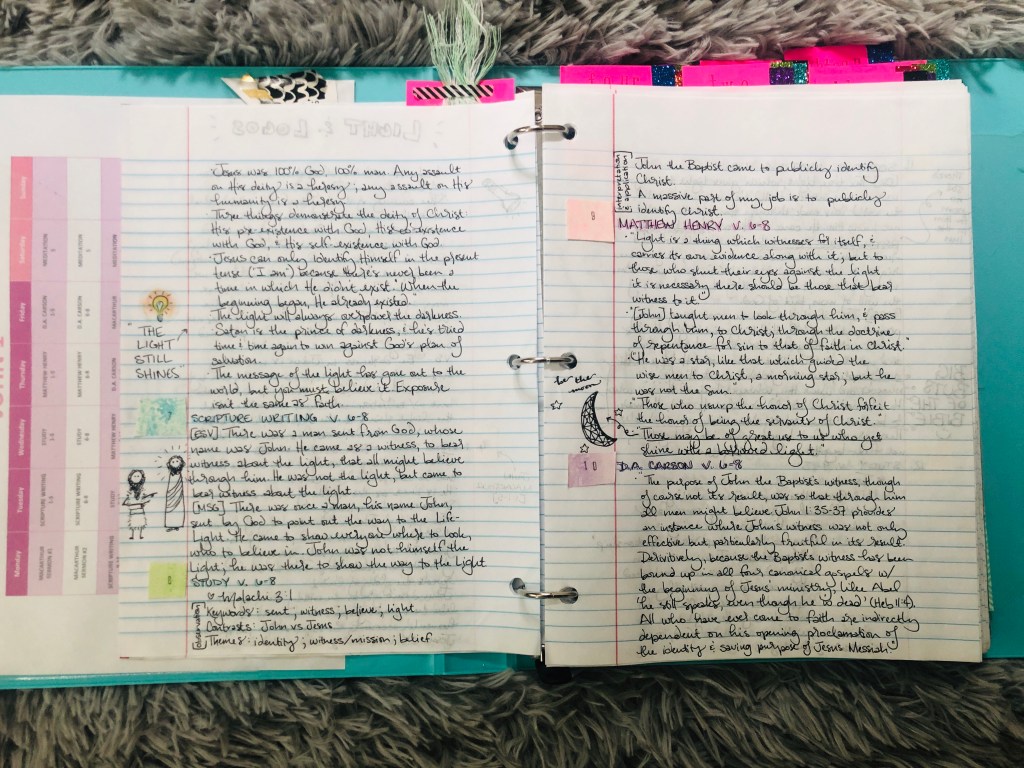 Jesus was 100% God, 100% man. Any assault
on His deity is a heresy; any assault on His
humanity is a heresy.
Three things demonstrate the deity of Christ
His pre existence with God, His co-existence
with God, & His self-existence with God
Jesus can only identify Himself in the present
tense ("I am") because there's never been a
time in which He didn't exist. "When the
beginning began, He already existed."
The light will always overpower the darkness.
Satan is the prince of darkness, & has tried
time & time again to win against God's plan of
salvation.
The message of the light has gone out to the
world, but you must believe it. Exposure
isn't the same as faith.
"THE
LIGHT
STILL
SHINES"
SCRIPTURE WRITING V. 6-8
[ESV] There was a man sent from God, whose
name was John. He came as a witness, to bear
witness about the light, that all might believe
through him. He was not the light, but came to
bear witness about the light.
[MSG] There was once a man, his name John,
sent by God to point out the way to the Life-
Light. He came to show everyone where to look,
who to believe in. John was not himself the
Light; he was there to show the way to the Light
STUDY V. 6-8
Malachi 3:1
observation
Keywords: sent; witness; believe; light
Contrasts: John vs Jesus
Themes: identity; witness/mission; belief
Sunday
Saturday
MEDITATION
MEDITATION
MEDITATION
Friday
D.A. CARSON
1-5
D.A. CARSON
6-8
MACARTHUR
Thursday
MATTHEW HENRY
1-5
MATTHEW HENRY
6-8
D.A. CARSON
Wednesday
STUDY
1-5
STUDY
6-8
MATTHEW HENRY
Tuesday
SCRIPTURE WRITING
1-5
SCRIPTURE WRITING
6-8
STUDY
Monday
MACARTHUR
SERMON #1
MACARTHUR
SERMON #2
SCRIPTURE WRITING
LIGHT & LOGOS
interpretation
& application
John the Baptist came to publicly identify
Christ.
A massive part of my job is to publicly
identify Christ.
9
MATTHEW HENRY V. 6-8
"Light is a thing which witnesses for itself, &
carries its own evidence along with it; but to
those who shut their eyes against the light
it is necessary there should be those that bear
witness to it."
"[John] taught men to look through him, & pass
through him, to Christ; through the doctrine
of repentance for sin to that of faith in Christ."
"He was a star, like that which guided the
wise men to Christ, a morning star; but he
was not the Sun."
"Those who usurp the honor of Christ forfeit
the honor of being the servants of Christ."
"Those may be of great use to us who yet
shine with a borrowed light."
be the
moon
10
D.A. CARSON V. 6-8
"The purpose of John the Baptist's witness, though
of course not its result, was so that through him
all men might believe. John 1:35-37 provides
an instance where John's witness was not only
effective but particularly fruitful in its result.
Derivitively, because the Baptist's witness has been
bound up in all four canonical gospels w/
the beginning of Jesus ministry, like Abel
'he still speaks, even though he is dead' (Heb 11:4).
All who have ever come to faith are indirectly
dependent on his opening proclamation of
the identity & saving purpose of Jesus Messiah."